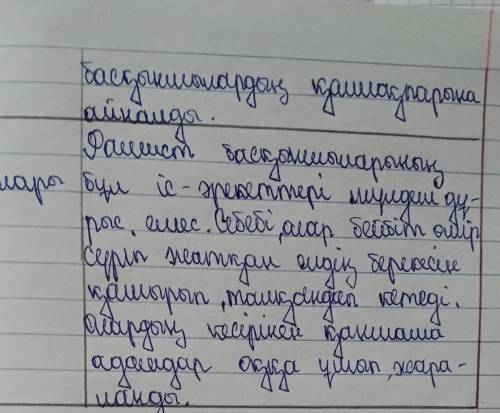 басқыншылардың қаншақтарына
айналды.
Фашист басқыншыларының
лары бұл іс-әрекеттері мүлдем дұ-
рыс емес. Себебі, олар бейбіт өмір
сүріп жатқан елдің берекесін
қашырып, талқандап кетеді.
Олардың кесірінен қаншама
адамдар оққа ұшып, жара-
ланды.